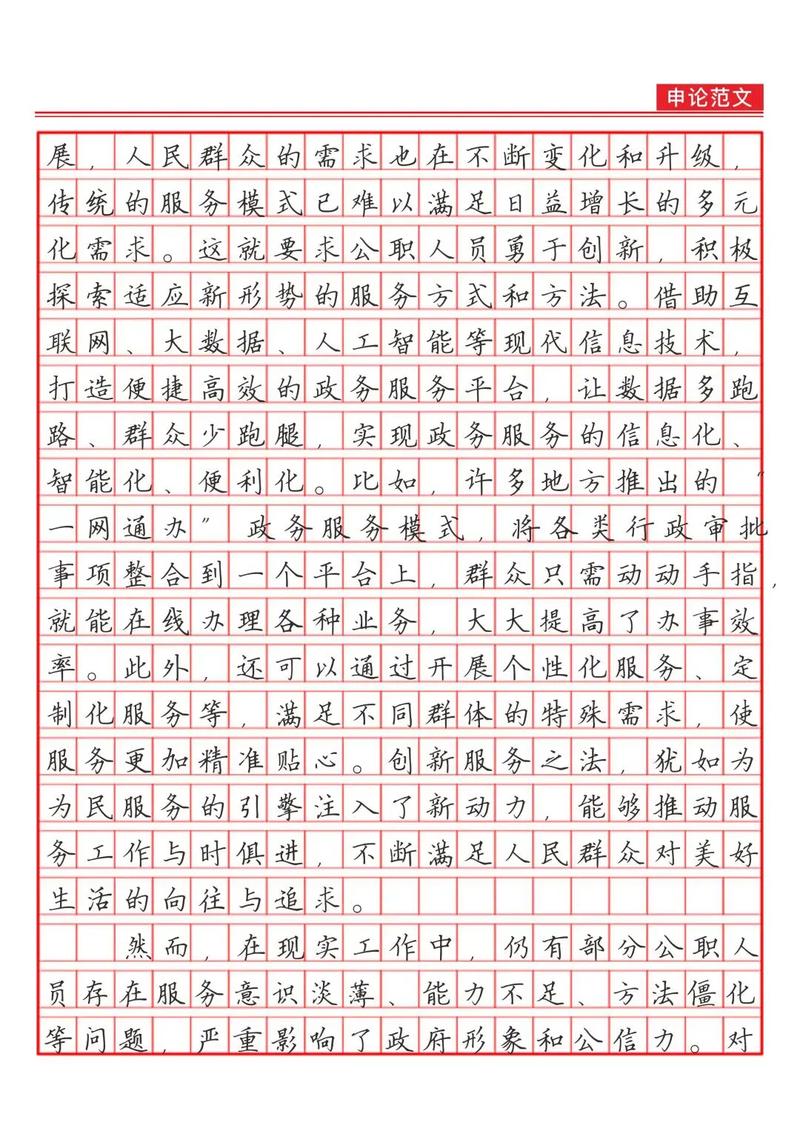 申论范文
展，人民群众的需求也在不断变化和升级，
传统的服务模式已难以满足日益增长的多元
化需求。这就要求公职人员勇于创新，积极
探索适应新形势的服务方式和方法。借助互
联网、大数据、人工智能等现代信息技术，
打造便捷高效的政务服务平台，让数据多跑
路、群众少跑腿，实现政务服务的信息化、
智能化、便利化。比如，许多地方推出的“
一网通办”政务服务模式，将各类行政审批
事项整合到一个平台上，群众只需动动手指，
就能在线办理各种业务，大大提高了办事效
率。此外，还可以通过开展个性化服务、定
制化服务等，满足不同群体的特殊需求，使
服务更加精准贴心。创新服务之法，犹如为
为民服务的引擎注入了新动力，能够推动服
务工作与时俱进，不断满足人民群众对美好
生活的向往与追求。
然而，在现实工作中，仍有部分公职人
员存在服务意识淡薄、能力不足、方法僵化
等问题，严重影响了政府形象和公信力。对